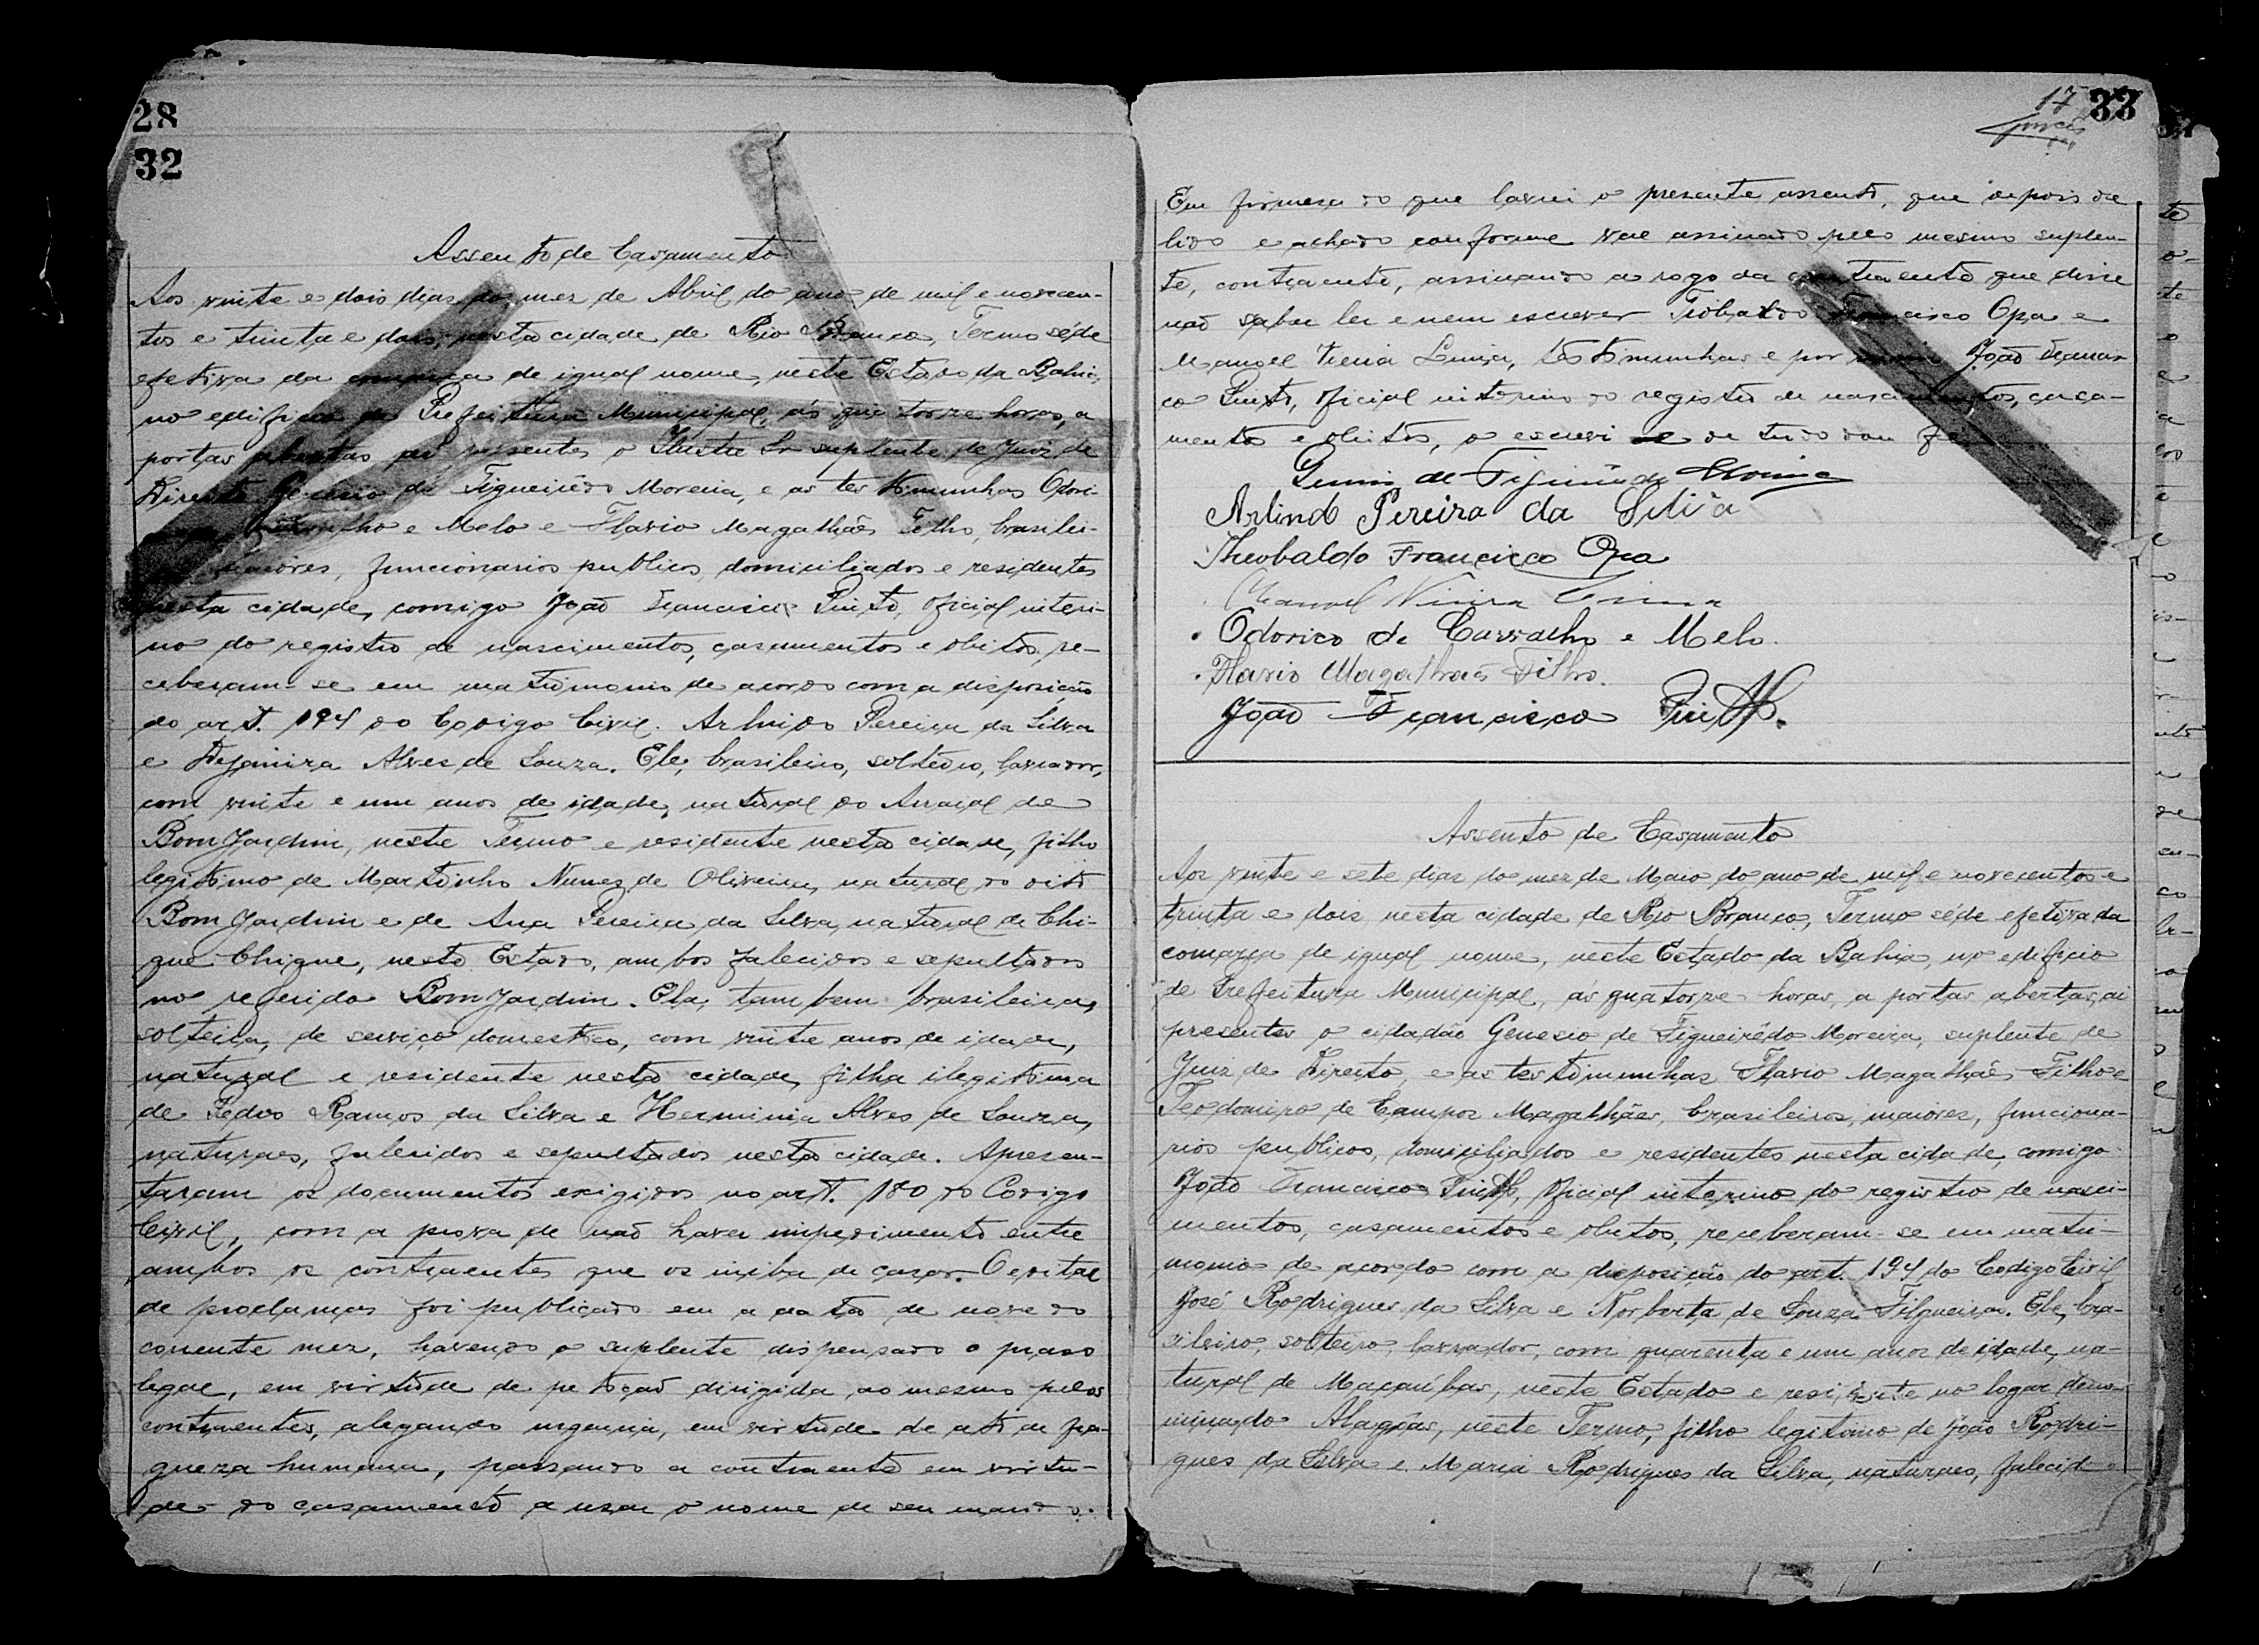 28
32
Assento de Casamento
Aos vinte e dois dias do mez de Abril do ano de mil e novecen-
tos e trinta e dois, nesta cidade de Rio Branco, Termo séde
efetiva da comarca de igual nome, neste Estado da Bahia,
no edificio da Prefeitura Municipal, ás quatorze horas, a
portas abertas ai presentes o Ilustre Sr suplente de Juiz de
Direito Genesio de Figueirêdo Moreira, e as testemunhas Odori-
Carvalho e Melo e Flavio Magalhães Filho, brasilei-
maiores, funcionarios publicos, domiciliados e residentes
nesta cidade, comigo João Francisco Pinto, Oficial interi-
no do registro de nascimentos, casamentos e obitos, re-
ceberam-se em matrimonio de acordo com a disposição
do art. 194 do Codigo Civil. Arlindo Pereira da Silva
e Dejanira Alves de Souza. Ele, brasileiro, solteiro, lavrador,
com vinte e um anos de idade, natural do Arraial de
Bom Jardim, neste Termo e residente nesta cidade, filho
legitimo de Martinho Nunes de Oliveira, natural do dito
Bom Jardim e de Ana Pereira da Silva, natural de Chi-
que-Chique, neste Estado, ambos falecidos e sepultados
no referido Bom Jardim. Ela, tambem brasileira,
solteira, de serviço domestico, com vinte anos de idade,
natural e residente nesta cidade, filha ilegitima
de Pedro Ramos da Silva e Herminia Alves de Souza,
naturaes, falecidos e sepultados nesta cidade. Apresen-
taram os documentos exigidos no art. 180 do Codigo
Civil, com a prova de não haver impedimento entre
ambos os contraentes que os iniba de casar. O edital
de proclamas foi publicado em a data de nove do
corrente mez, havendo o suplente dispensado o praso
legal, em virtude de petição dirigida ao mesmo pelos
contraentes, alegando urgencia, em virtude de ato de fra-
queza humana, passando a contraente em virtu-
de do casamento a usar o nome de seu marido.
17
33
Em firmesa do que lavrei o presente assento, que depois de
lido e achado conforme vae assinado pelo mesmo suplen-
te, contraente, assinando a rogo da contraente que disse
não saber ler e nem escrever Teobaldo Francisco Opa e
Manoel Vieira Lima, testemunhas e por mim João Francis-
co Pinto, Oficial interino do registro de nascimentos, casa-
mentos e obitos, o escrevi e de tudo dou fé.
Genesio de Figueirêdo Moreira
Arlindo Pereira da Silva
Theobaldo Francisco Opa
Manoel Vieira Lima
Odorico de Carvalho e Melo.
Flavio Magalhães Filho.
João Francisco Pinto.
Assento de Casamento
Aos vinte e sete dias do mez de Maio do ano de mil e novecentos e
trinta e dois, nesta cidade de Rio Branco, Termo séde efetiva da
comarca de igual nome, neste Estado da Bahia, no edificio
de Prefeitura Municipal, ás quatorze horas, a portas abertas, ai
presentes o cidadão Genesio de Figueirêdo Moreira, suplente de
Juiz de Direito, e as testemunhas Flavio Magalhães Filho e
Teodomiro de Campos Magalhães, brasileiros, maiores, funciona-
rios publicos, domiciliados e residentes nesta cidade, comigo
João Francisco Pinto, Oficial interino do registro de nasci-
mentos, casamentos e obitos, receberam-se em matri-
monio de acordo com a disposição do art. 194 do Codigo Civil
José Rodrigues da Silva e Norberta de Souza Filgueiras. Ele, bra-
sileiro, solteiro, lavrador, com quarenta e um anos de idade, na-
tural de Macaúbas, neste Estado e residente no logar deno-
minado Alagôas, neste Termo, filho legitimo de João Rodri-
gues da Silva e Maria Rodrigues da Silva, naturaes, falecido